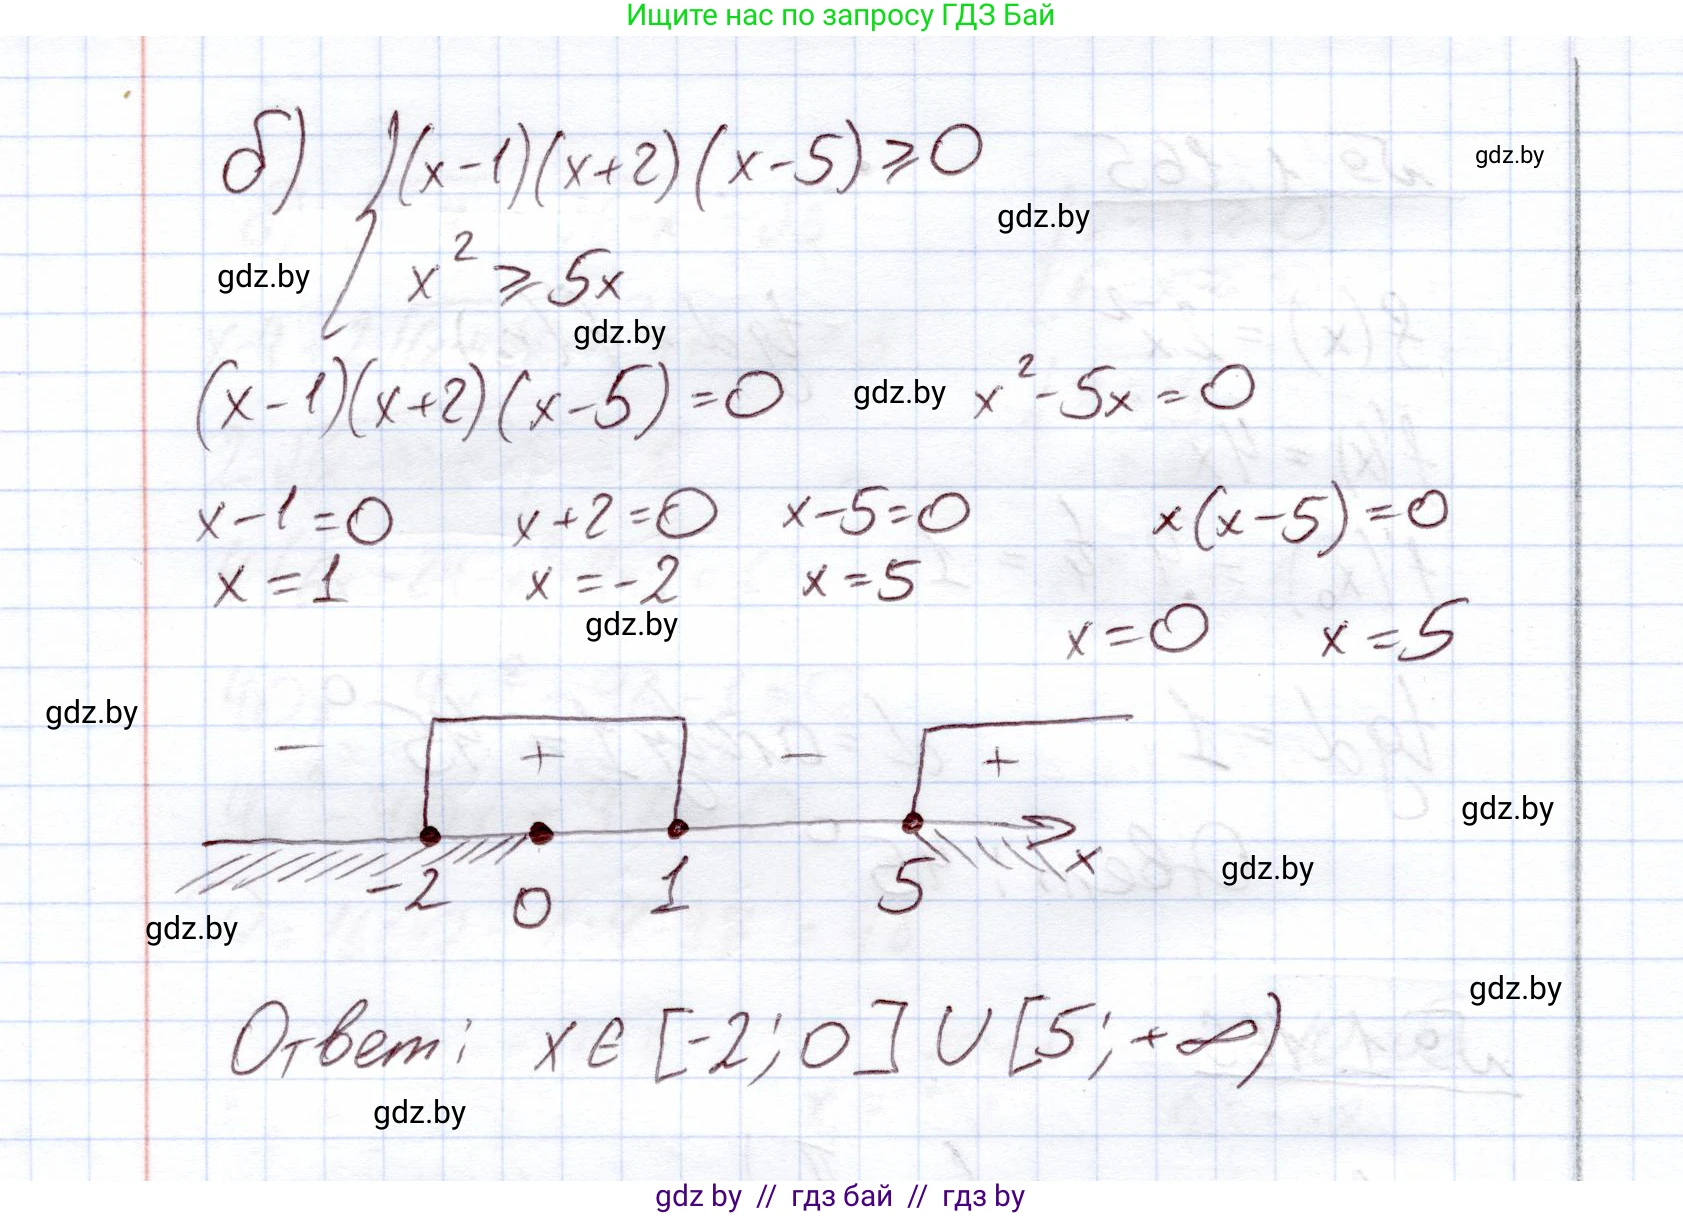 Ищите нас по запросу ГДЗ Бай
б) { (x-1)(x+2)(x-5) ⩾ 0
gdz.by
gdz.by
gdz.by
x² ⩾ 5x
gdz.by
(x-1)(x+2)(x-5) = 0 gdz.by x² - 5x = 0
x-1=0 x+2=0 x-5=0 x(x-5)=0
x=1 x=-2 x=5
gdz.by
x=0 x=5
gdz.by
- + - +
gdz.by
-2 0 1 5 x
gdz.by
gdz.by
gdz.by
Ответ: x ∈ [-2; 0] ∪ [5; +∞)
gdz.by
gdz by // гдз бай // гдз by